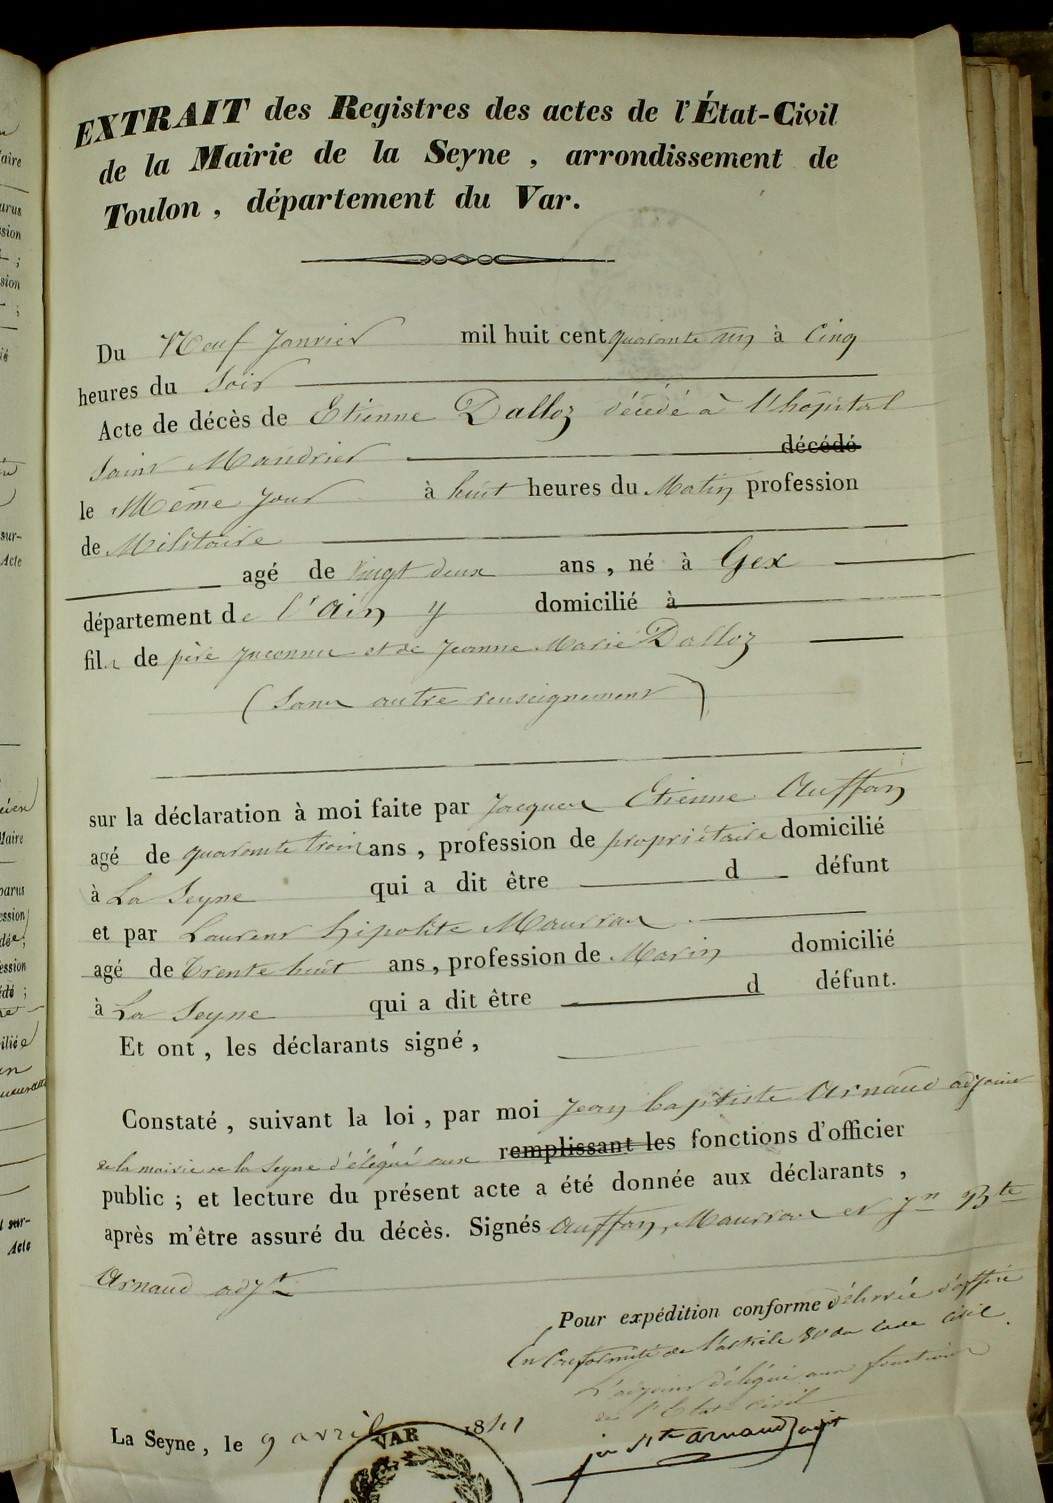 EXTRAIT des Registres des actes de l'État-Civil
de la Mairie de la Seyne , arrondissement de
Toulon , département du Var.
Du Neuf Janvier mil huit cent quarante un à Cinq
heures du Soir
Acte de décès de Etienne Dalloz décédé à l'hôpital
Saint Mandrier décédé
le Même jour à huit heures du Matin profession
de Militaire
agé de vingt deux ans , né à Gex
département de l'Ain y domicilié à
fils de père Inconnu et de Jeanne Marie Dalloz
(Sans autre renseignement)
sur la déclaration à moi faite par Jacques Etienne Auffan
agé de quarante trois ans , profession de propriétaire domicilié
à La Seyne qui a dit être d défunt
et par Laurent hipolite Maurras
agé de Trente huit ans , profession de Marin domicilié
à La Seyne qui a dit être d défunt.
Et ont , les déclarants signé ,
Constaté , suivant la loi , par moi Jean baptiste Arnaud adjoint
de la mairie de la Seyne délégué aux remplissant les fonctions d'officier
public ; et lecture du présent acte a été donnée aux déclarants ,
après m'être assuré du décès. Signés Auffan, Maurras et Jn Bte
Arnaud adjt
Pour expédition conforme délivrée d'office
En Conformité de l'article 80 du Code Civil.
L'adjoint délégué aux fonctions
de l'Etat Civil
La Seyne , le 9 avril 1841
jn Bte Arnaud adjt
VAR